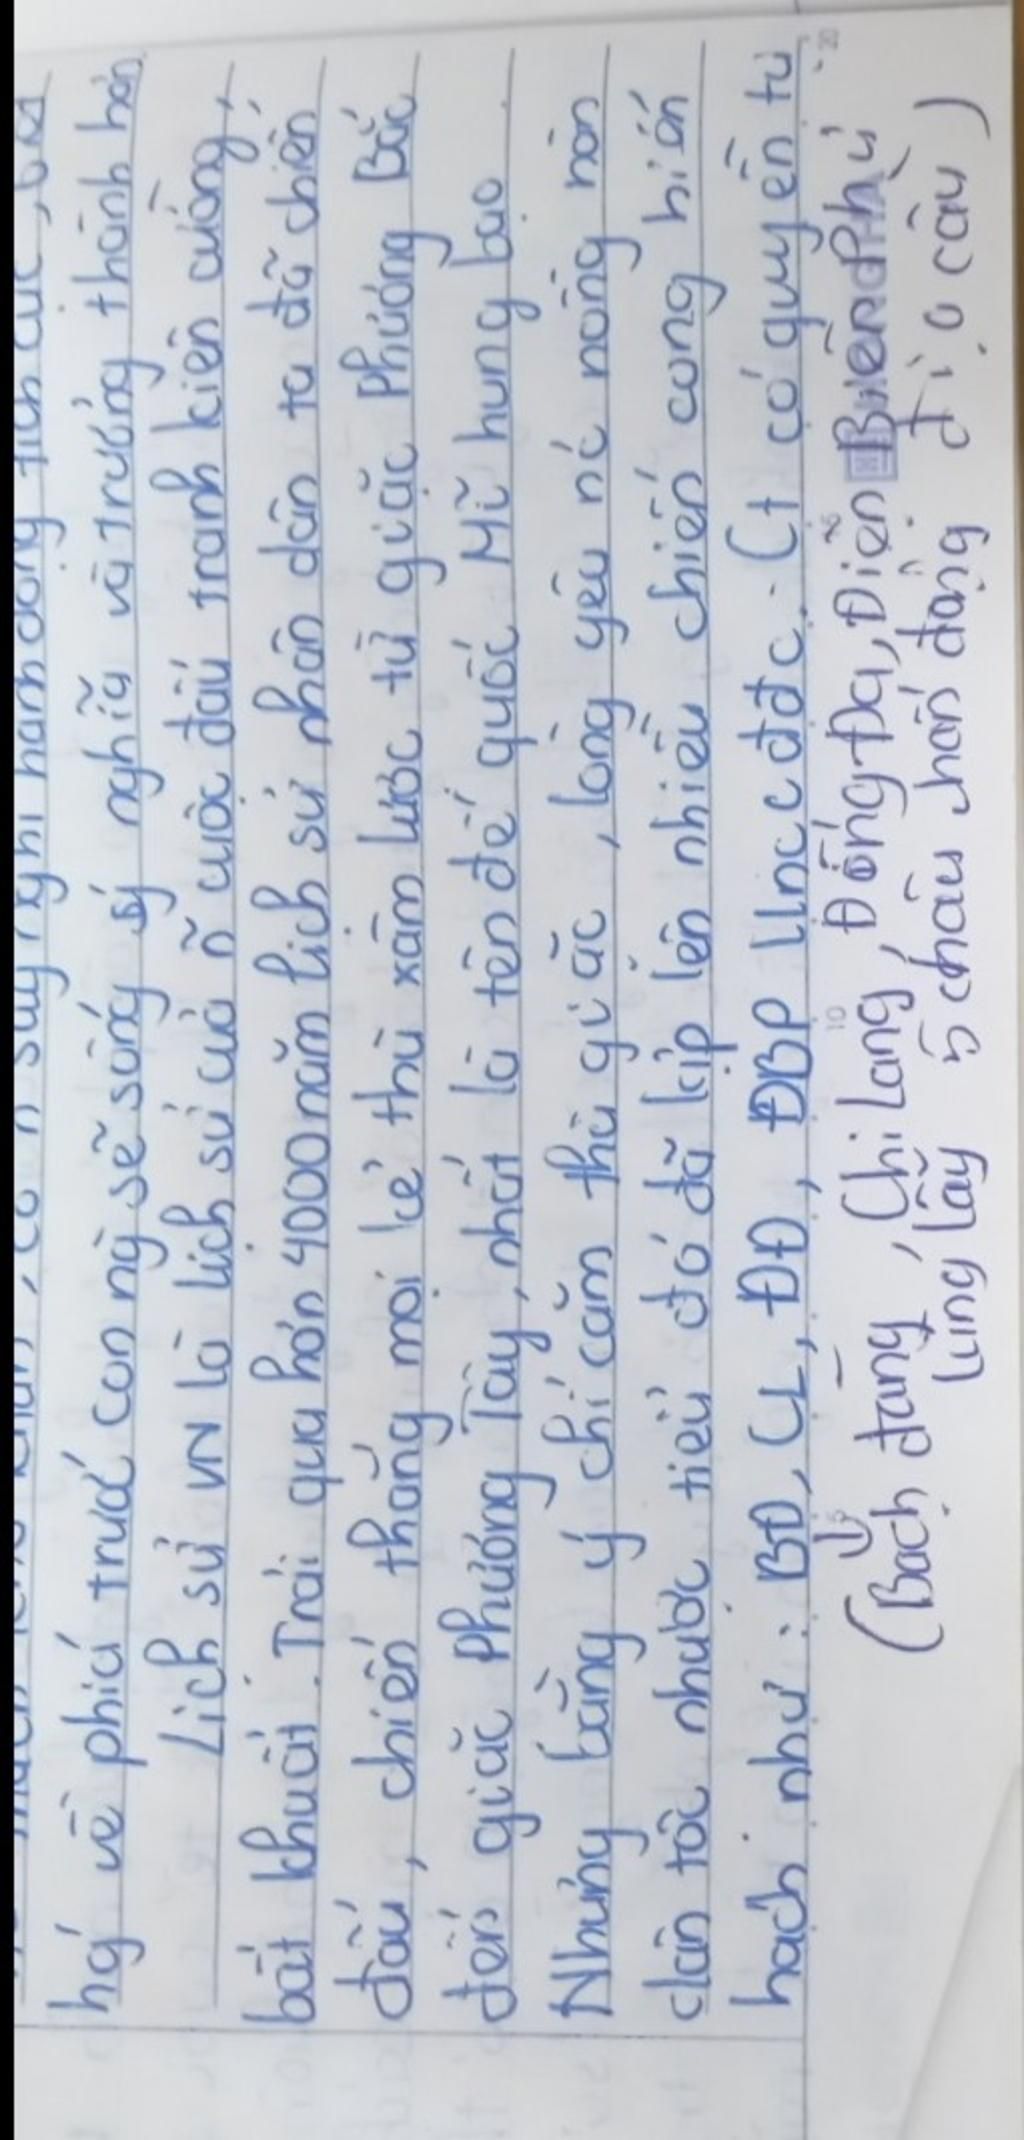 suy nghĩ hành động tích cực,
hg về phía trước con ng sẽ sống sý nghĩa và trưởng thành hơn
Lịch sử VN là lịch sử của ñ cuộc đấu tranh kiên cường,
bất khuất. Trải qua hơn 4000 năm lịch sử nhân dân ta đã chiến
đấu, chiến thắng mọi kẻ thù xâm lược từ giặc phương Bắc
đến giặc phương Tây, nhất là tên đế quốc Mĩ hung bạo.
Nhưng bằng ý chí căm thù giặc, lòng yêu nc nồng nàn
dân tộc nhược tiểu đó đã kịp lên nhiều chiến cong hiển
hách như: BĐ, CL, ĐĐ, ĐBP llnccđđc. (t có quyền tự
(Bạch đằng, Chi Lăng, Đống Đa, Điện Biên Phủ
lừng lẫy 5 châu chấn động địa cầu)